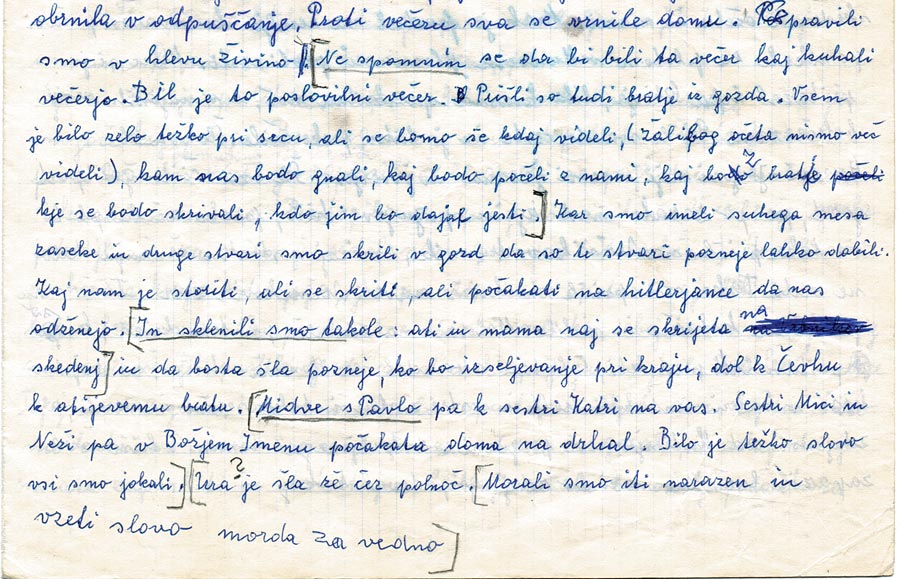 obrnila v odpuščanje. Proti večeru sva se vrnile domu. Pospravili
smo v hlevu živino. [Ne spomnim se da bi bili ta večer kaj kuhali
večerjo. Bil je to poslovilni večer. Prišli so tudi bratje iz gozda. Vsem
je bilo zelo težko pri srcu, ali se bomo še kdaj videli, (žalibog očeta nismo več
videli), kam nas bodo gnali, kaj bodo počeli z nami, kaj bo z bratji
kje se bodo skrivali, kdo jim bo dajal jesti.] Kar smo imeli suhega mesa
zaseke in druge stvari smo skrili v gozd da so te stvari pozneje lahko dobili.
Kaj nam je storiti, ali se skriti, ali počakati na hitlerjance da nas
odženejo. [In sklenili smo takole: ati in mama naj se skrijeta na
skedenj] in da bosta šla pozneje, ko bo izseljevanje pri kraju, dol k Čevhu
k atijevemu bratu. [Midve s Pavlo pa k sestri Katri na vas. Sestri Mici in
Neži pa v Božjem Imenu počakata doma na drhal. Bilo je težko slovo
vsi smo jokali.] [Ura? je šla že čez polnoč. [Morali smo iti narazen in
vzeti slovo morda za vedno]